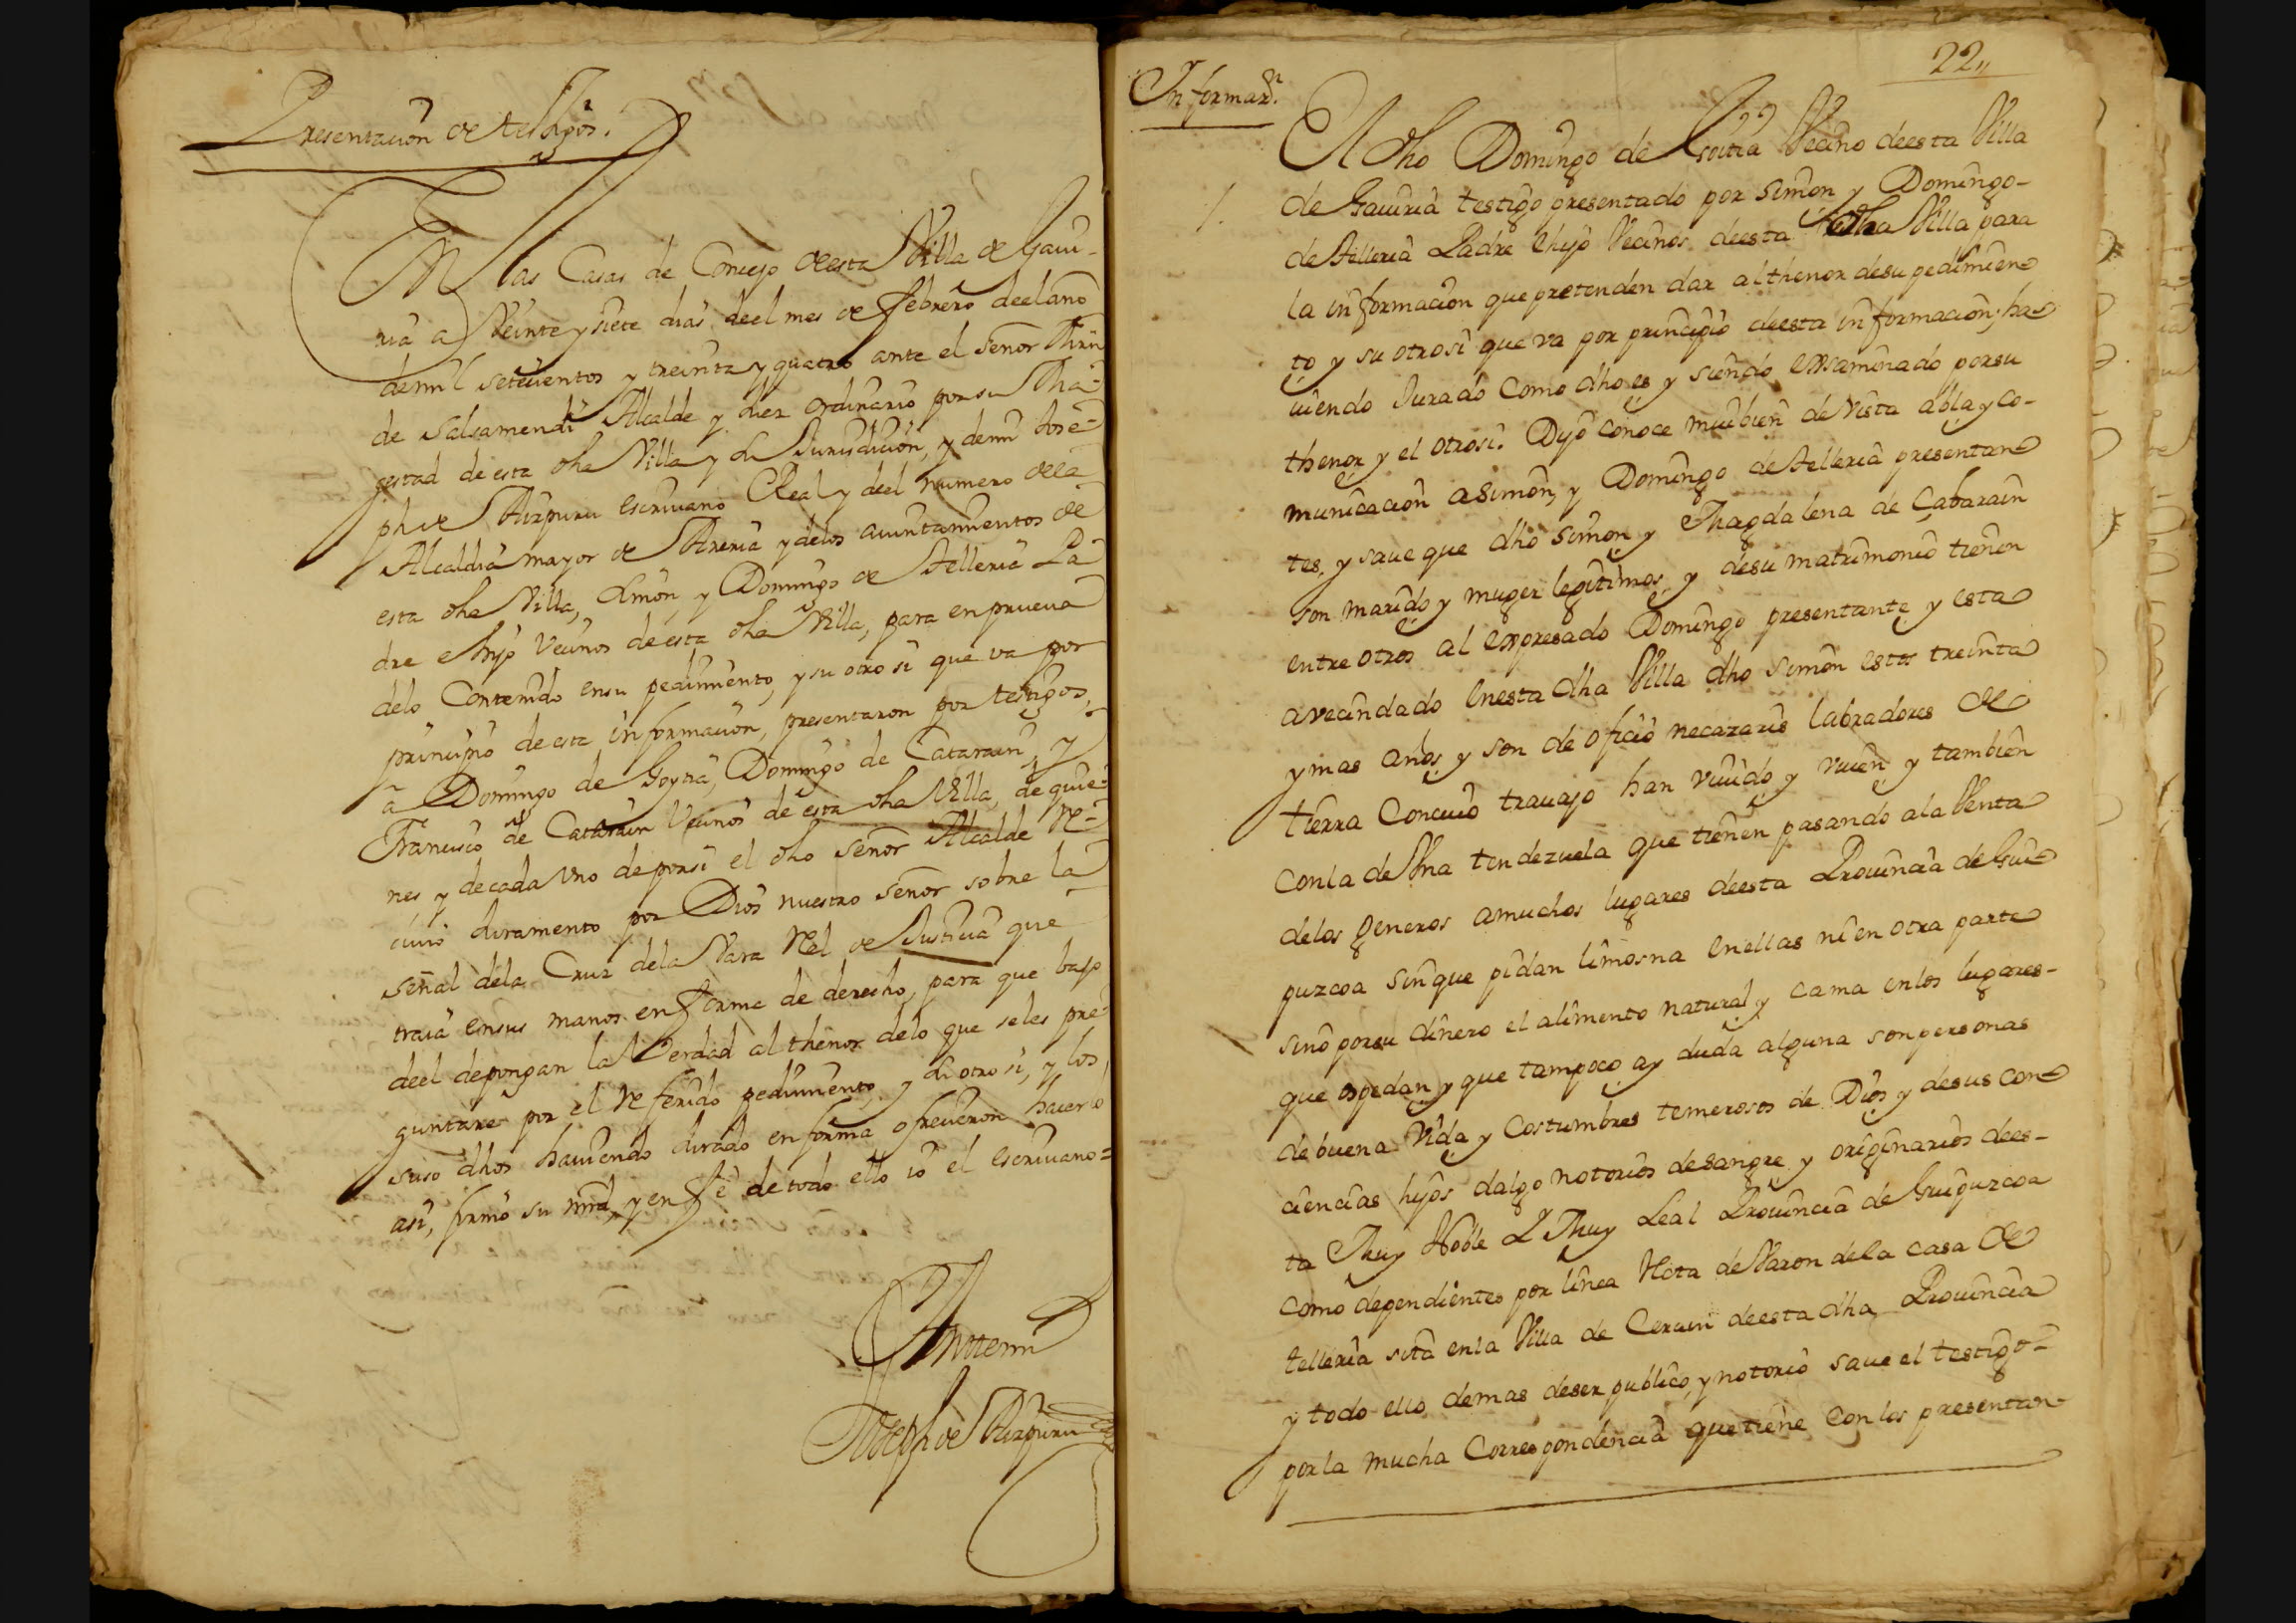 Presentacion de testigos.
En las Casas de Concejo de esta Villa de Gaui-
ria a Veinte y siete dias deel mes de febrero deel año
demil setecientos y treinta y quatro ante el señor
de Salsamendi Alcalde y Juez ordinario por su Ma-
gestad de esta dha Villa y su Jurisdicion, y demi Jose-
ph de Aizpuru escriuano Real y deel numero dela
Alcaldia mayor de Areria y delos aiuntamientos de
esta dha Villa, Simon, y Domingo de Telleria Pa-
dre e hijo Vecinos de esta dha Villa, para en prueua
delo Contenido ensu pedimiento, y su otro si que va por
principio de esta informacion, presentaron por testigos,
a Domingo de Goytia, Domingo de Catarain, y
Francisco de Catarain Vecinos de esta dha Villa, de quie-
nes y decada Vno deporsi el dho señor Alcalde Re-
ciuio Juramento por Dios nuestro señor sobre la
señal dela Cruz dela Vara Rel de Justicia que
traia ensus manos en forma de derecho, para que bajo
deel depongan la Verdad al thenor delo que seles pre-
guntare por el Referido pedimiento, y su otro si, y los
suso dhos hauiendo Jurado en forma ofrecieron hacerlo
asi, firmo su mrd, y en fe de todo ello io el escriuano=
Antemi
Joseph de Aizpuru
22,,
Informaon.
1. El dho Domingo de Goitia Vecino deesta Villa
de Gauiria testigo presentado por Simon y Domingo-
de Telleria Padre e hijo Vecinos deesta dha Villa para
la informacion que pretenden dar al thenor desu pedimien-
to y su otrosi que va por principio deesta informacion; ha-
uiendo Jurado Como dho es y siendo exsaminado porsu
thenor y el otrosi. Dijo conoce mui bien de vista abla y co-
municacion a Simon, y Domingo de Telleria presentan-
tes, y saue que dho Simon y Magdalena de Cabarain
son marido y muger legitimos y desu matrimonio tienen
entre otros al expresado Domingo presentante y esta
avecindado enesta dha Villa dho Simon estos treinta
y mas años y son de oficio necazaris labradores de
tierra Concuio trauajo han viuido y viuen y tambien
Conla de Vna tendezuela que tienen pasando ala Venta
delos generos amuchos lugares deesta Prouincia de Gui-
puzcoa sin que pidan limosna enellas ni en otra parte
sino porsu dinero el alimento natural y cama enlos lugares-
que ospedan y que tampoco ay duda alguna son personas
de buena Vida y Costumbres temerosos de Dios y desus Con-
ciencias hijos dalgo notorios desangre y originarios dees-
ta Muy Noble y Muy Leal Prouincia de Guipuzcoa
Como dependientes por linea Recta de Varon dela Casa de
Telleria sita enla Villa de Cerain deesta dha Prouincia
y todo ello demas deser publico, y notorio saue el testigo-
porla mucha Correspondencia que tiene Con los presentan-